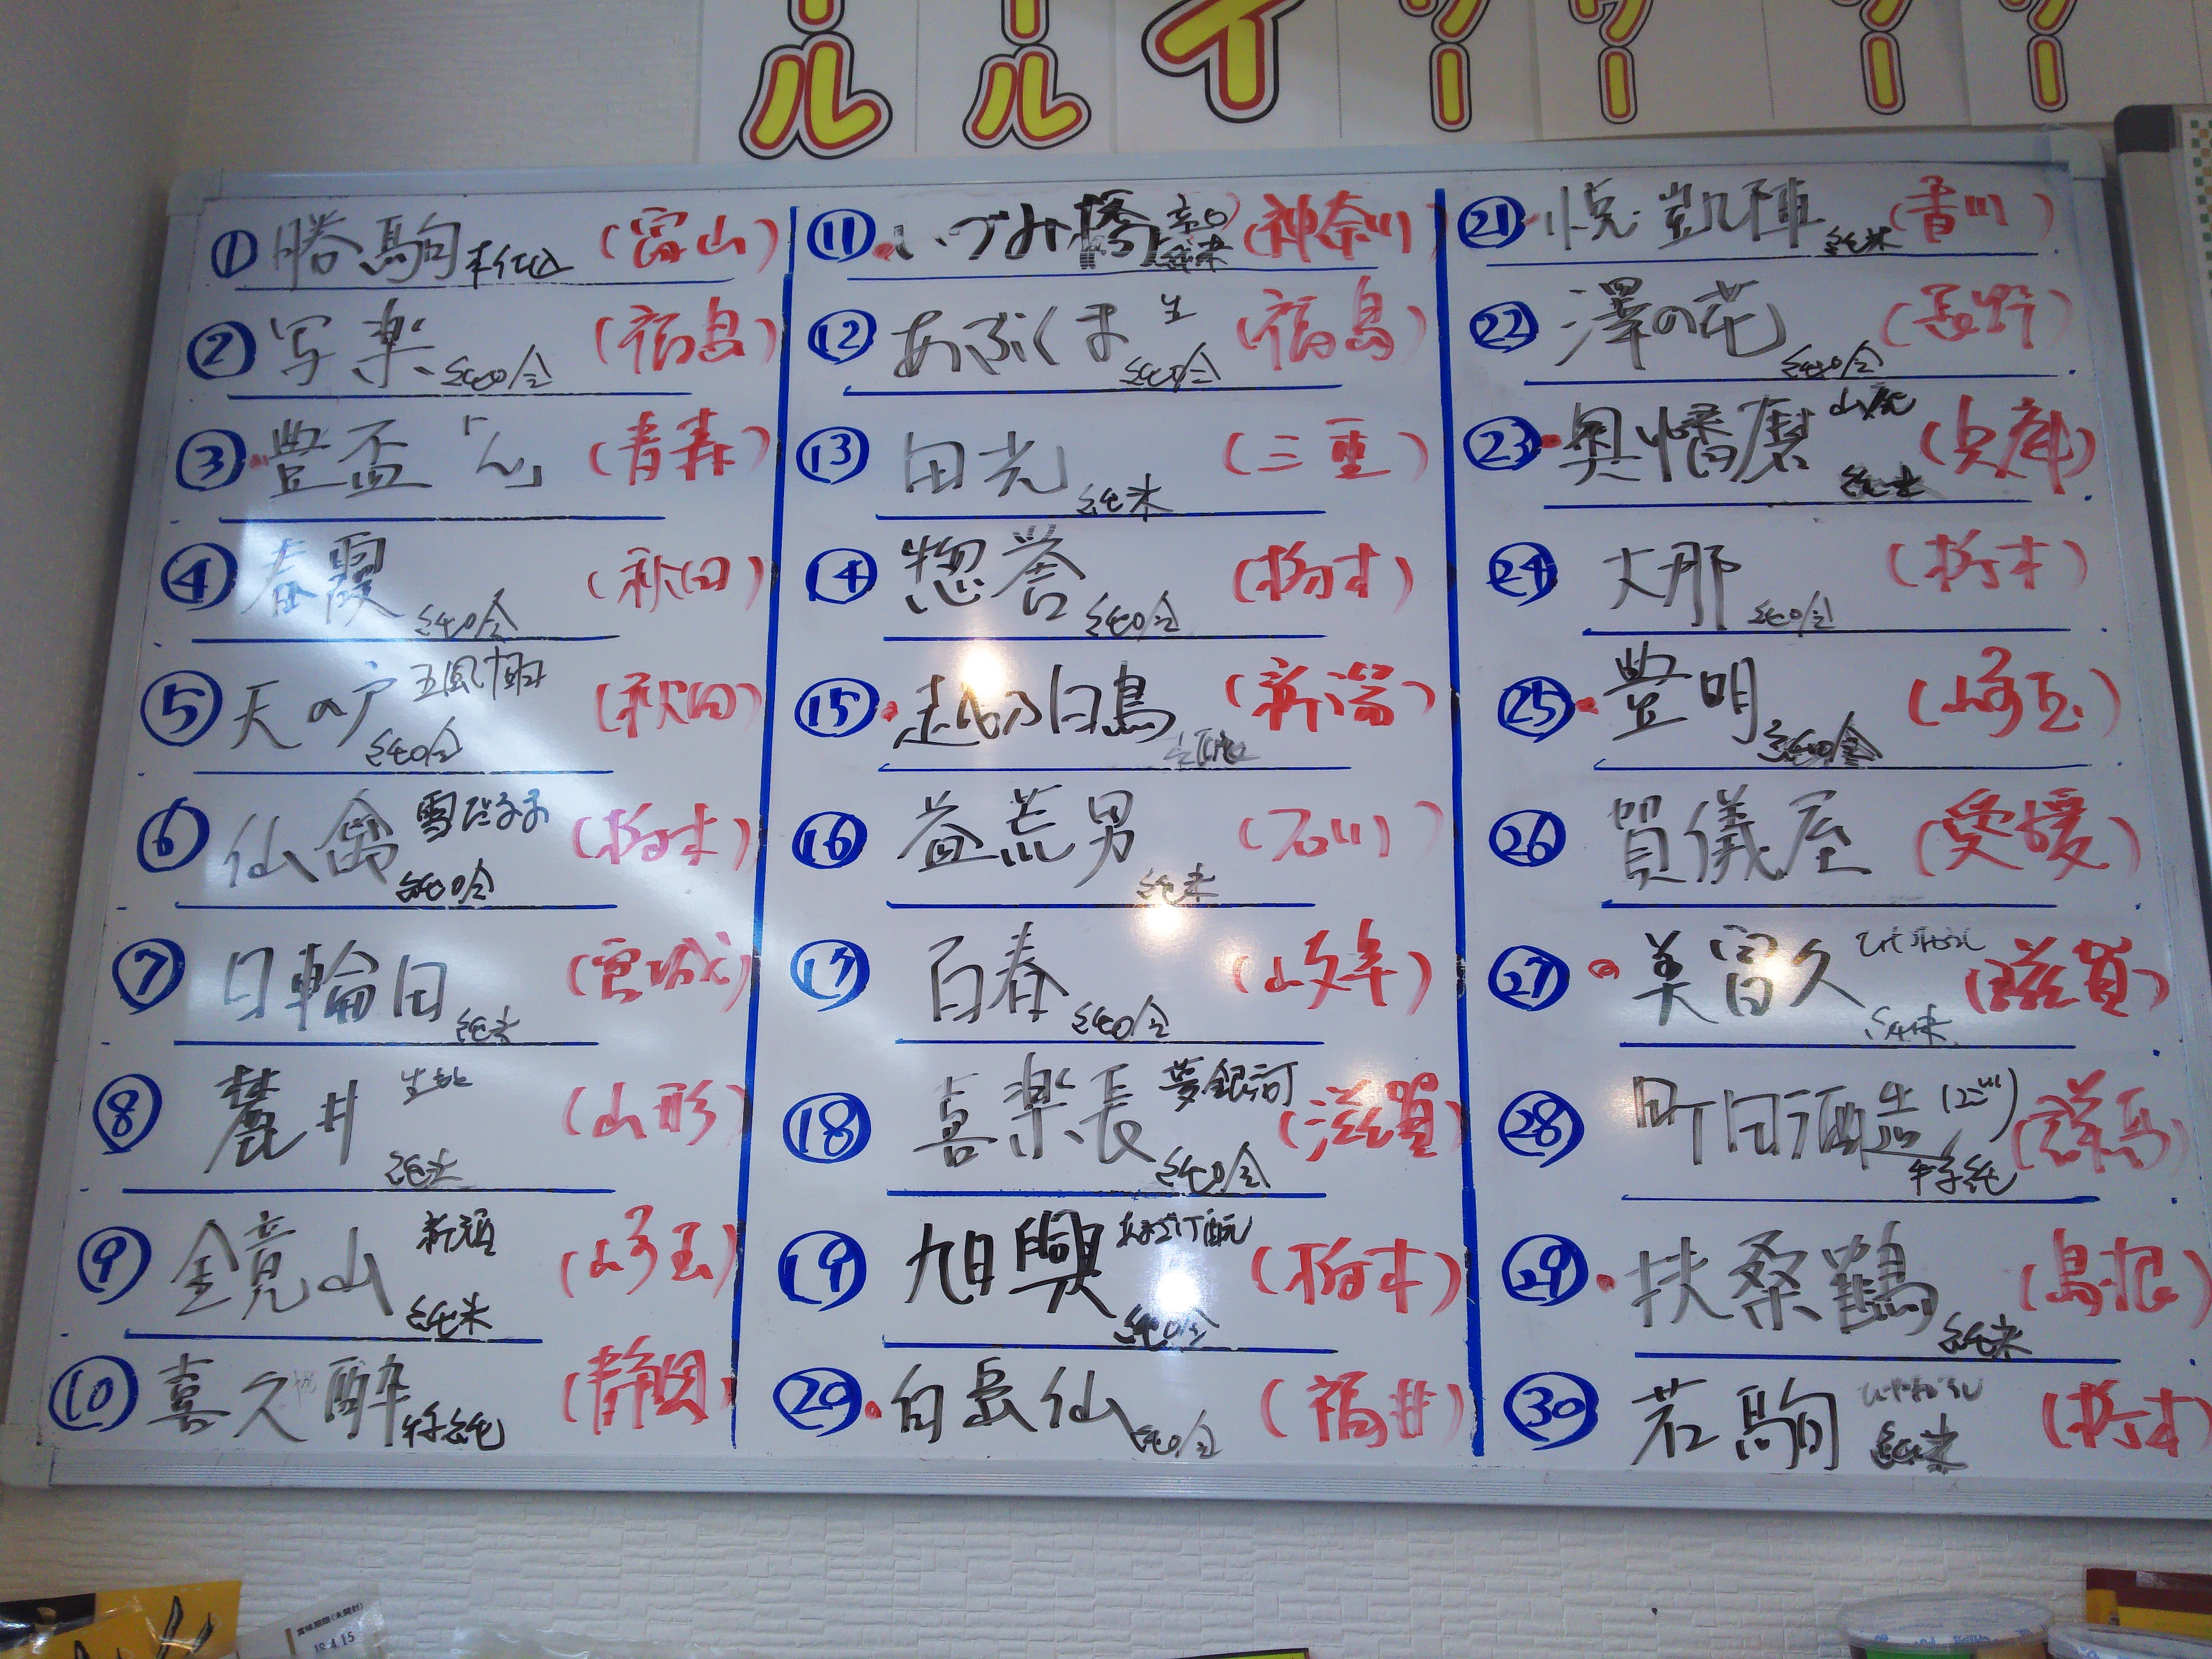 ール
ール
イ
ワー
ワー
ワー
ワー
① 勝駒 本仕込 (富山)
② 写楽 純吟 (福島)
③ 豊盃「ん」 (青森)
④ 春霞 純吟 (秋田)
⑤ 天の戸 五風十雨 純吟 (秋田)
⑥ 仙禽 雪だるま 純吟 (栃木)
⑦ 日輪田 純米 (宮城)
⑧ 麓井 生酛 純米 (山形)
⑨ 金鏡山 純米 (埼玉)
⑩ 喜久酔 特純 (静岡)
⑪ いづみ橋 辛口 純米 (神奈川)
⑫ あぶくま 生 純吟 (福島)
⑬ 田光 純米 (三重)
⑭ 惣誉 純吟 (栃木)
⑮ 越乃白鳥 (新潟)
⑯ 益荒男 純米 (石川)
⑰ 百春 純吟 (岐阜)
⑱ 喜楽長 夢銀河 純吟 (滋賀)
⑲ 旭興 純吟 (栃木)
⑳ 白岳仙 純吟 (福井)
㉑ 悦凱陣 純米 (香川)
㉒ 澤の花 純吟 (長野)
㉓ 奥播磨 山廃 純米 (兵庫)
㉔ 大那 純吟 (栃木)
㉕ 豊明 純吟 (埼玉)
㉖ 賀儀屋 (愛媛)
㉗ 美冨久 ひやおろし 純米 (滋賀)
㉘ 町田酒造 にごり 特純 (群馬)
㉙ 扶桑鶴 純米 (島根)
㉚ 若駒 ひやおろし 純米 (栃木)
賞味期限(未開封)
18.4.15